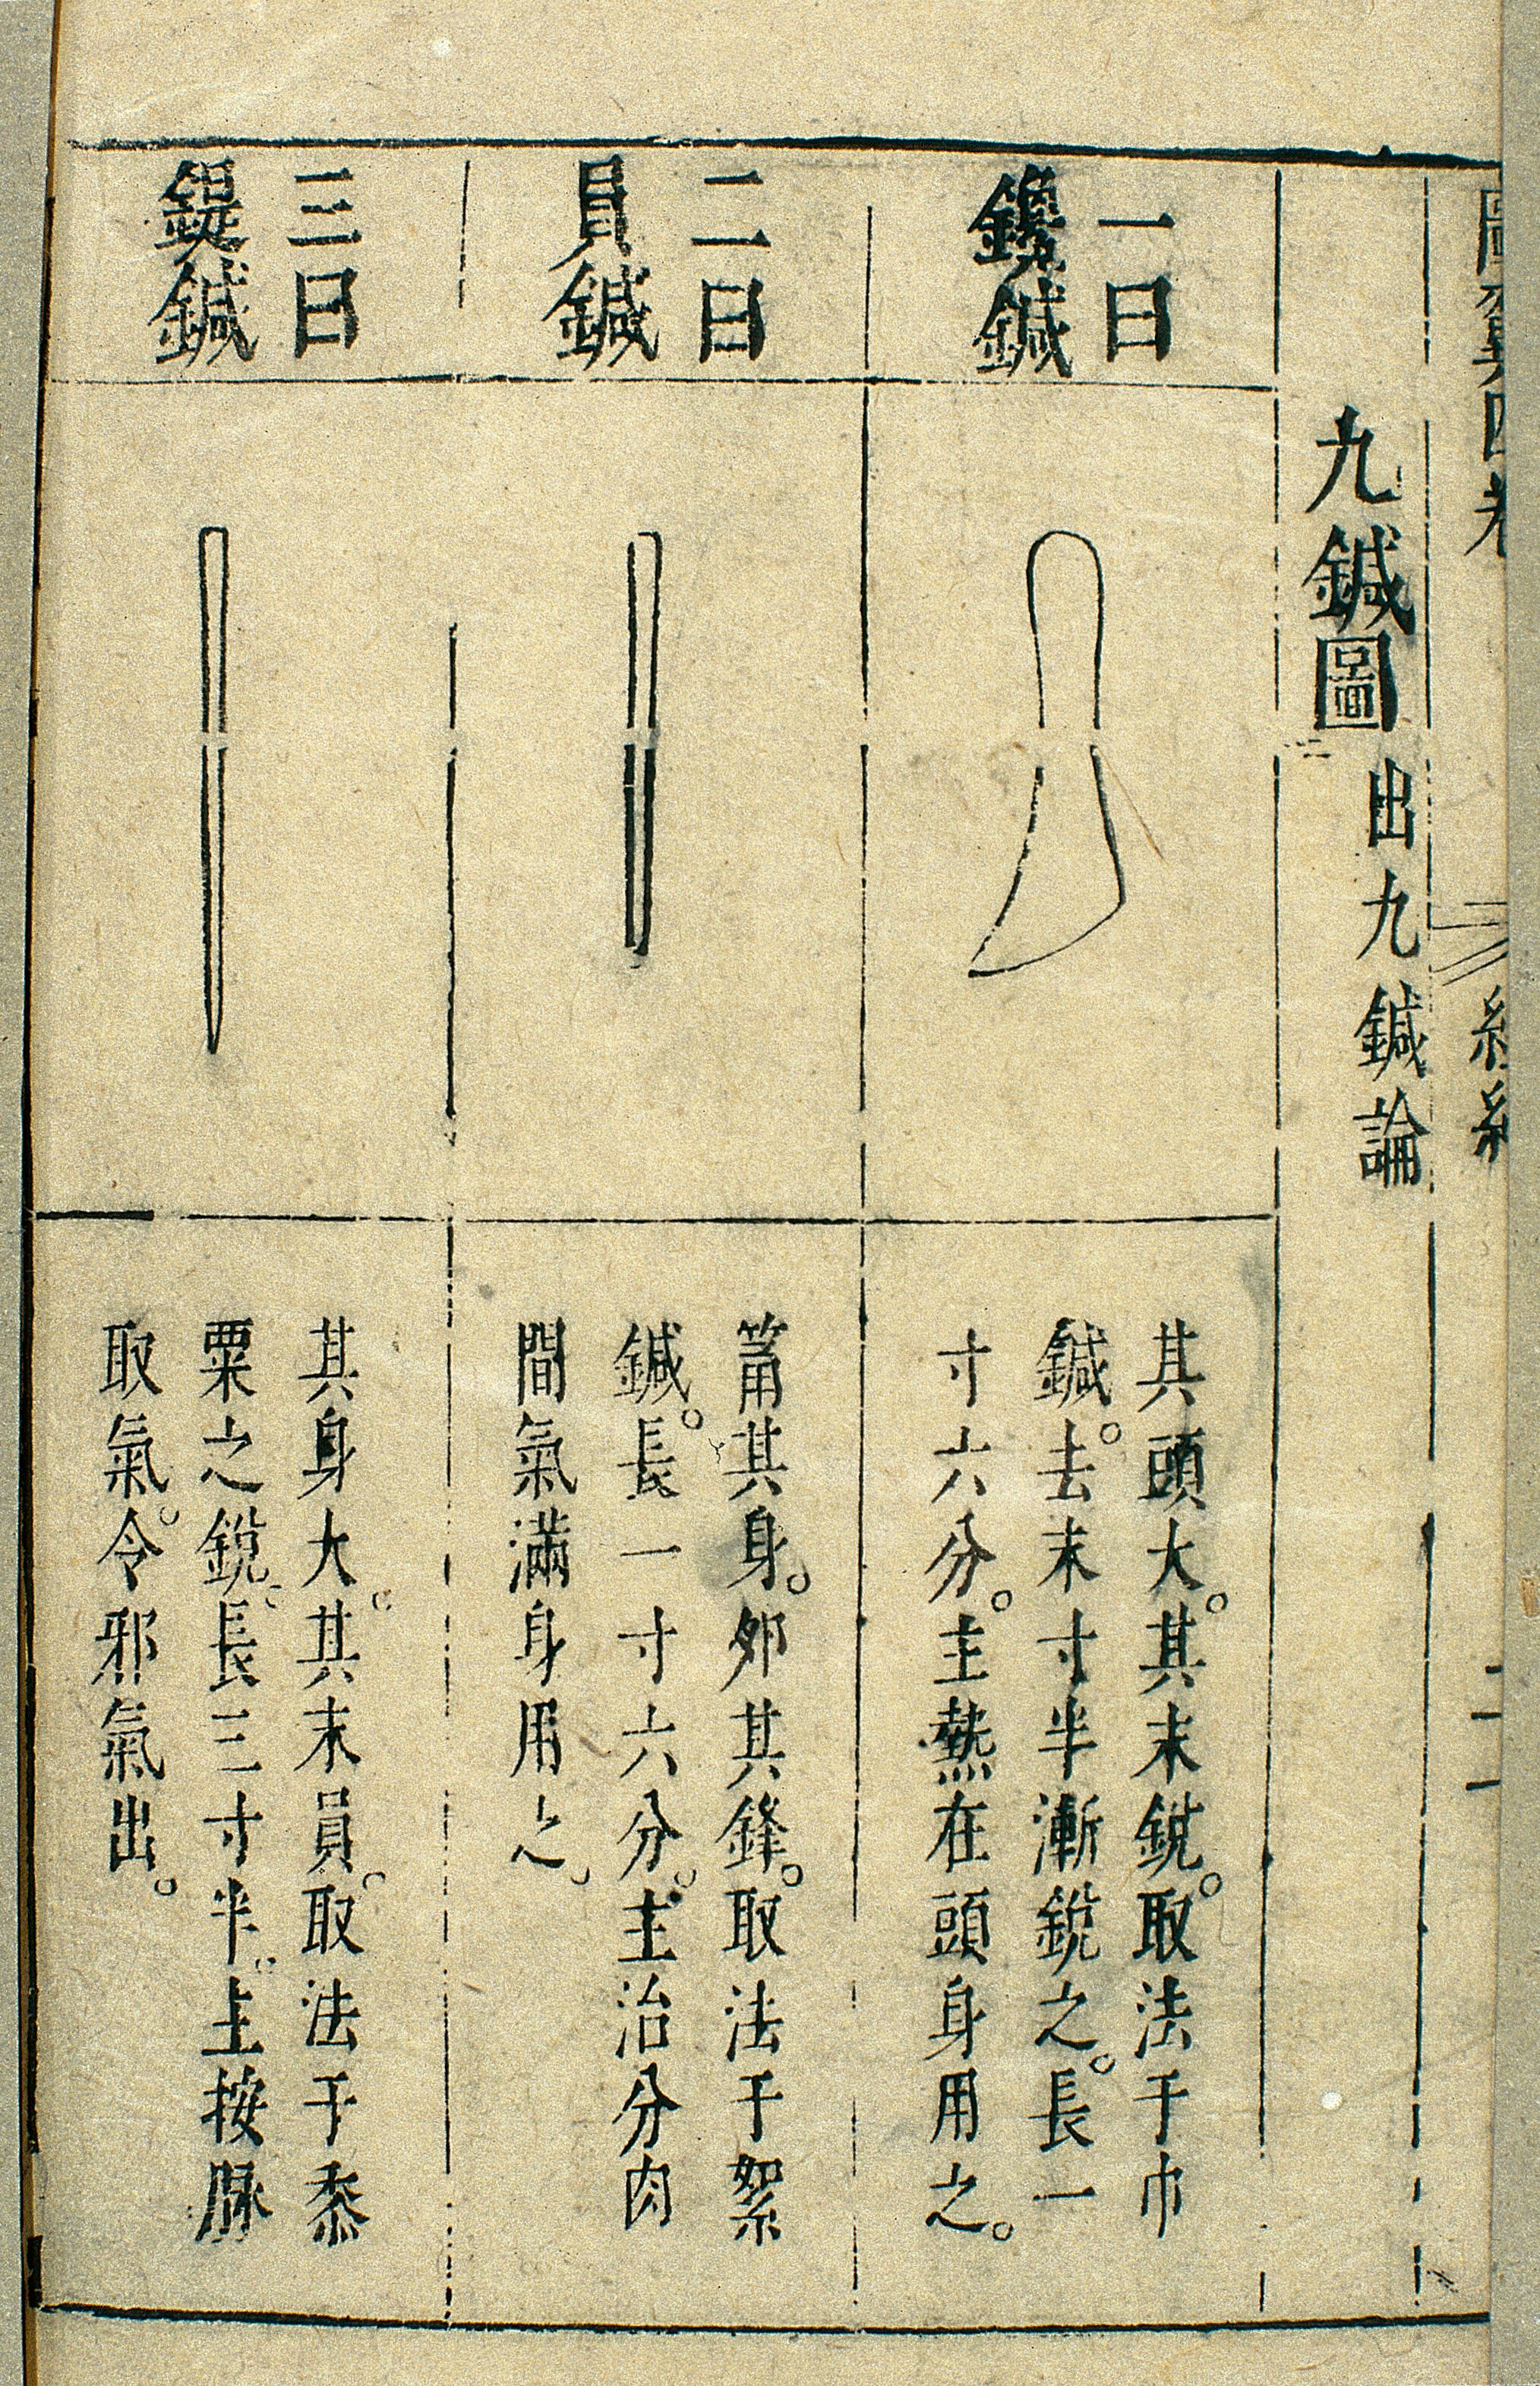 圖翼四卷
經絡
九鍼圖 出九鍼論
一曰
鑱鍼
其頭大。其末銳。取法于巾
鍼。去末寸半漸銳之。長一
寸六分。主熱在頭身用之。
二曰
員鍼
筩其身。夘其鋒。取法于絮
鍼。長一寸六分。主治分肉
間氣滿身用之。
三曰
鍉鍼
其身大。其末員。取法于黍
粟之銳。長三寸半。主按脉
取氣。令邪氣出。